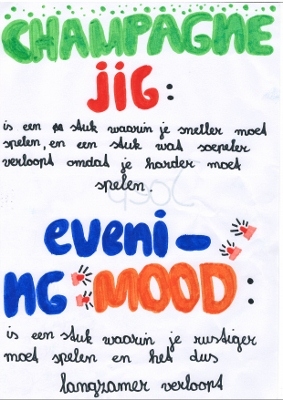 CHAMPAGNE
jiG:
is een stuk waarin je sneller moet
spelen, en een stuk wat soepeler
verloopt omdat je harder moet
spelen.
eveni-
NG MOOD:
is een stuk waarin je rustiger
moet spelen en het dus
langzamer verloopt